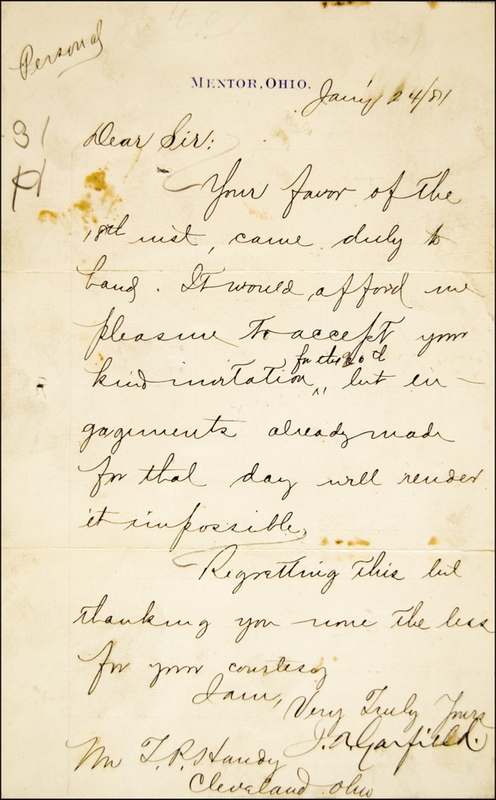 Personal
MENTOR, OHIO.
Jan'y 24/81
Dear Sir:
Your favor of the
18th inst, came duly to
hand. It would afford me
pleasure to accept your
for the 30th
kind invitation ^, but en-
gagements already made
for that day will render
it impossible.
Regretting this but
thanking you none the less
for your courtesy
I am,
Very Truly Yours
J. A. Garfield.
Mr T. P. Handy
Cleveland Ohio